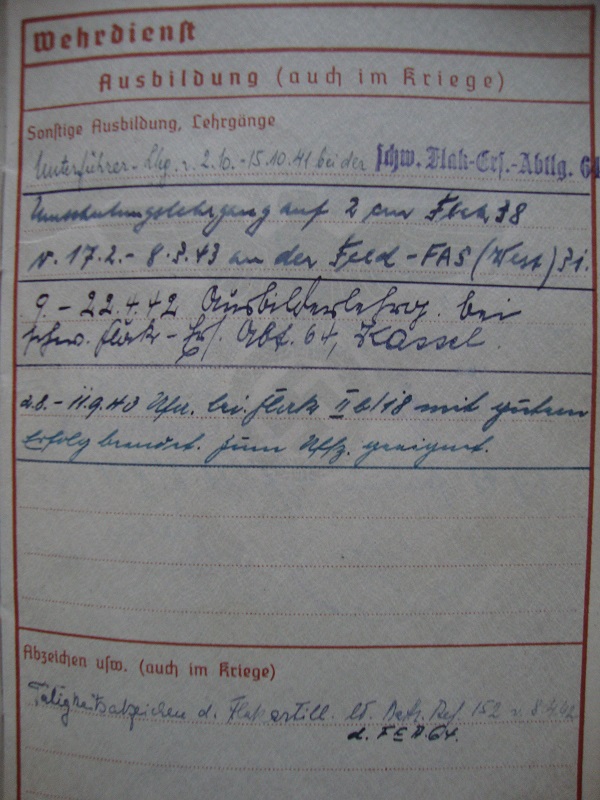 Wehrdienst
Ausbildung (auch im Kriege)
Sonstige Ausbildung, Lehrgänge
Unterführer-Lhg. v. 2.10.-15.10.41 bei der schw. Flak-Ers.-Abtlg. 64
Umschulungslehrgang auf 2 cm Flak 38
v. 17.2.- 8.3.43 an der Feld-FAS (West) 31.
9.-22.4.42 Ausbilderlehrg. bei
schw. Flak-Ers. Abt. 64, Kassel.
bei Flak II 6/18 mit gutem
Erfolg beendet. zum Uffz. geeignet.
Abzeichen usw. (auch im Kriege)
Tätigkeitsabzeichen d. Flakartill. lt. 152 v.
d. 64.